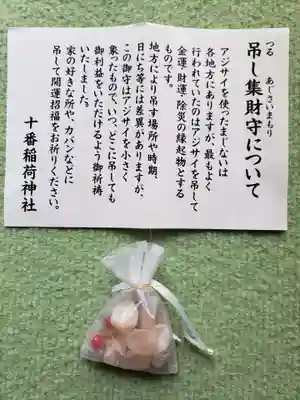 つる あじさいまもり
吊し集財守について
アジサイを使ったまじないは
各地方にありますが、最もよく
行われていたのはアジサイを吊して
金運・財運・除災の縁起物とする
ものです。
地方により吊す場所や時期、
日にち等には差異がありますが、
この御守はアジサイを小さく
象ったもので、いつ、どこに吊しても
御利益をいただけるよう御祈祷
いたしました。
家の好きな所や、カバンなどに
吊して開運招福をお祈りください。
十番稲荷神社